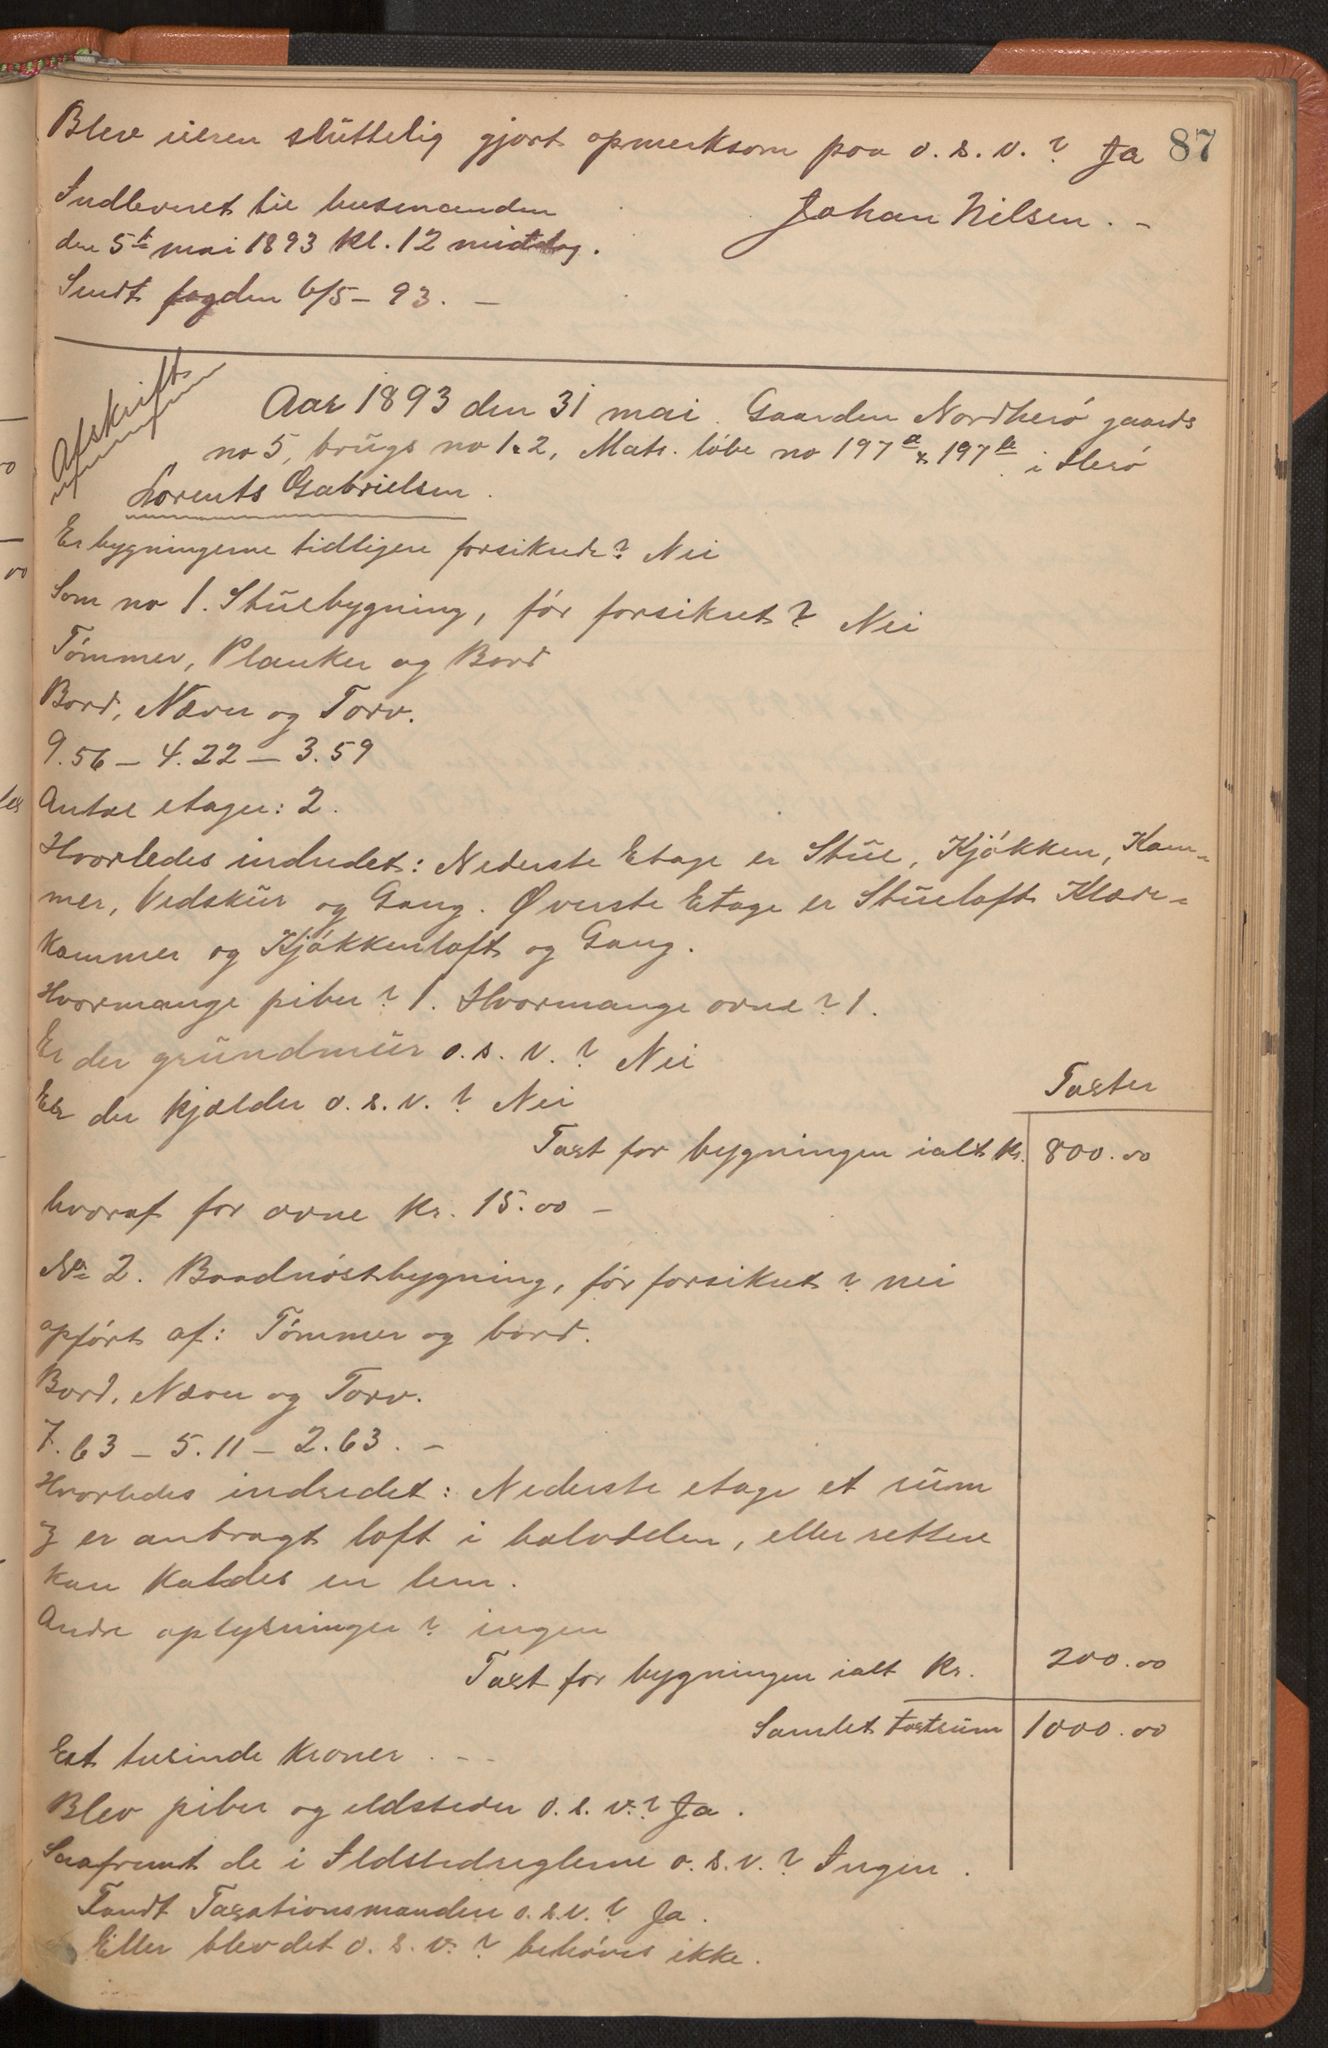 87
Blev eieren sluttelig gjort opmerksom paa o. s. v. ? Ja
Johan Nilsen. –
Indleveret til lensmanden
den 5te mai 1893 kl. 12 middag.
Sendt fogden 6/5 – 93. –
Afskrift
Aar 1893 den 31 mai. Gaarden Nordherø gaards
no 5, brugs no 1 & 2, Matr. løbe no 197 a & 197 b i Herø
Lorents Gabrielsen.
Er bygningerne tidligere forsikrede? Nei
Som no 1. Stuebygning, før forsikret? Nei
Tømmer, Planker og Bord
Bord, Næver og Torv.
9.56 – 4.22 – 3.59
Antal etager: 2.
Hvorledes indredet: Nederste Etage er Stue, Kjøkken, Kam-
mer, Vedskur og Gang. Øverste Etage er Stueloft Klæde-
kammer og Kjøkkenloft og Gang.
Hvormange piber? 1. Hvormange ovne? 1.
Er der grundmur o. s. v. ? Nei
Er der kjælder o. s. v. ? Nei
Taxter
Taxt for bygningen ialt kr. 800.00
hvoraf for ovne kr. 15.00 –
No 2. Baadnøstbygning, før forsikret? nei
opført af: Tømmer og bord.
Bord, Næver og Torv.
7.63 – 5.11 – 2.63. –
Hvorledes indredet: Nederste etage et rum
og er anbragt loft i halvdelen, eller rettere
kan kaldes en lem.
Andre oplysninger? ingen
Taxt for bygningen ialt kr. 200.00
Samlet taxtsum 1000.00
Et tusinde kroner. – –
Blev piber og ildsteder o. s. v. ? Ja.
Saafremt de i Ildstedreglerne o. s. v. ? Ingen.
Fandt Taxationsmanden o. s. v. ? Ja.
Eller blev det o. s. v. ? behøves ikke.